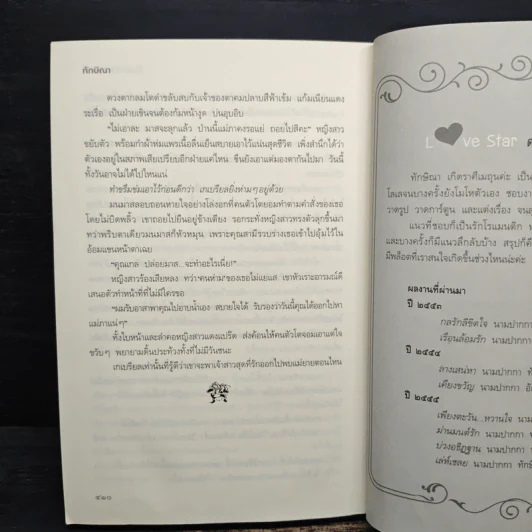 ทักษิณา
ดวงตากลมโตดำขลับสบกับเจ้าของตาคมปลาบสีฟ้าเข้ม แก้มเนียนแดง
ระเรื่อ เป็นฝ่ายเขินจนต้องก้มหน้างุด บ่นอุบอิบ
"ไม่เอาละ มาสจะลุกแล้ว ป่านนี้แม่ภางรอแย่ ถอยไปสิคะ" หญิงสาว
ขยับตัว พร้อมกำผ้าห่มแพรเนื้อลื่นเย็นสบายเอาไว้แน่นสุดชีวิต เพิ่งสำนึกได้ว่า
ตัวเองอยู่ในสภาพเสียเปรียบอีกฝ่ายแค่ไหน ขืนยังเอาแต่มองตากันไปมา วันนี้
ทั้งวันอาจไม่ได้ไปไหนแน่
ทำขรึมข่มเอาไว้ก่อนดีกว่า เกเบรียลยิ่งห่ามๆ อยู่ด้วย
มนมาสลอบถอนหายใจอย่างโล่งอกที่คนตัวโตยอมทำตามคำสั่งของเธอ
โดยไม่บิดพลิ้ว เขาถอยไปยืนอยู่ข้างเตียง รอกระทั่งหญิงสาวทรงตัวลุกขึ้นมา
ทว่าพริบตาเดียวมนมาสก็หัวหมุน เพราะคุณสามีรวบร่างเธอเข้าไปอุ้มไว้ใน
อ้อมแขนหน้าตาเฉย
"คุณเกล ปล่อยมาส...จะทำอะไรเนี่ย!"
หญิงสาวร้องเสียงหลง ทว่า'คนห่าม'ของเธอไม่แยแส เขาหัวเราะอารมณ์ดี
เสนอตัวทำหน้าที่ที่ไม่มีใครขอ
"ผมรับอาสาพาคุณไปอาบน้ำเอง สบายใจได้ รับรองว่าวันนี้คุณได้ออกไปหา
แม่ภาแน่ๆ"
ทั้งใบหน้าและลำคอหญิงสาวแดงแปร๊ด ส่งค้อนให้คนตัวโตจอมเอาแต่ใจ
ขวับๆ พยายามดิ้นประท้วงทั้งที่ไม่มีวันชนะ
เกเบรียลเท่านั้นที่รู้ดีว่าเขาจะพาเจ้าสาวสุดที่รักออกไปพบแม่ยายตอนไหน
๔๒๐
Love Star
ทักษิณา เกิดราศีเมถุนค่ะ เป็น
โลเลจนบางครั้งยังโมโหตัวเอง ชอบงา
วาดรูป วาดการ์ตูน และแต่งเรื่อง จน
แนวที่ชอบก็เป็นรักโรแมนติก
และบางครั้งก็มีแนวลึกลับบ้าง สรุปก็คื
มีพล็อตที่เราสนใจเกิดขึ้นช่วงไหนน่ะค่ะ
ผลงานที่ผ่านมา
ปี ๒๕๕๓
กลรักลิขิตใจ นามปากกา
เรือนล้อมรัก นามปากกา
ปี ๒๕๕๔
ลางเสน่หา นามปากกา ทั
เคียงขวัญ นามปากกา อั
ปี ๒๕๕๕
เพียงตะวัน...หวานใจ นา
ม่านมนต์รัก นามปากกา ทั
บ่วงอธิฏฐาน นามปากกา
เล่ห์เชลย นามปากกา ทักษิ